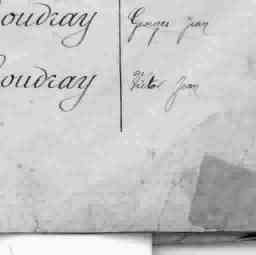 oudray Georges Jean
oudray Victor Jean